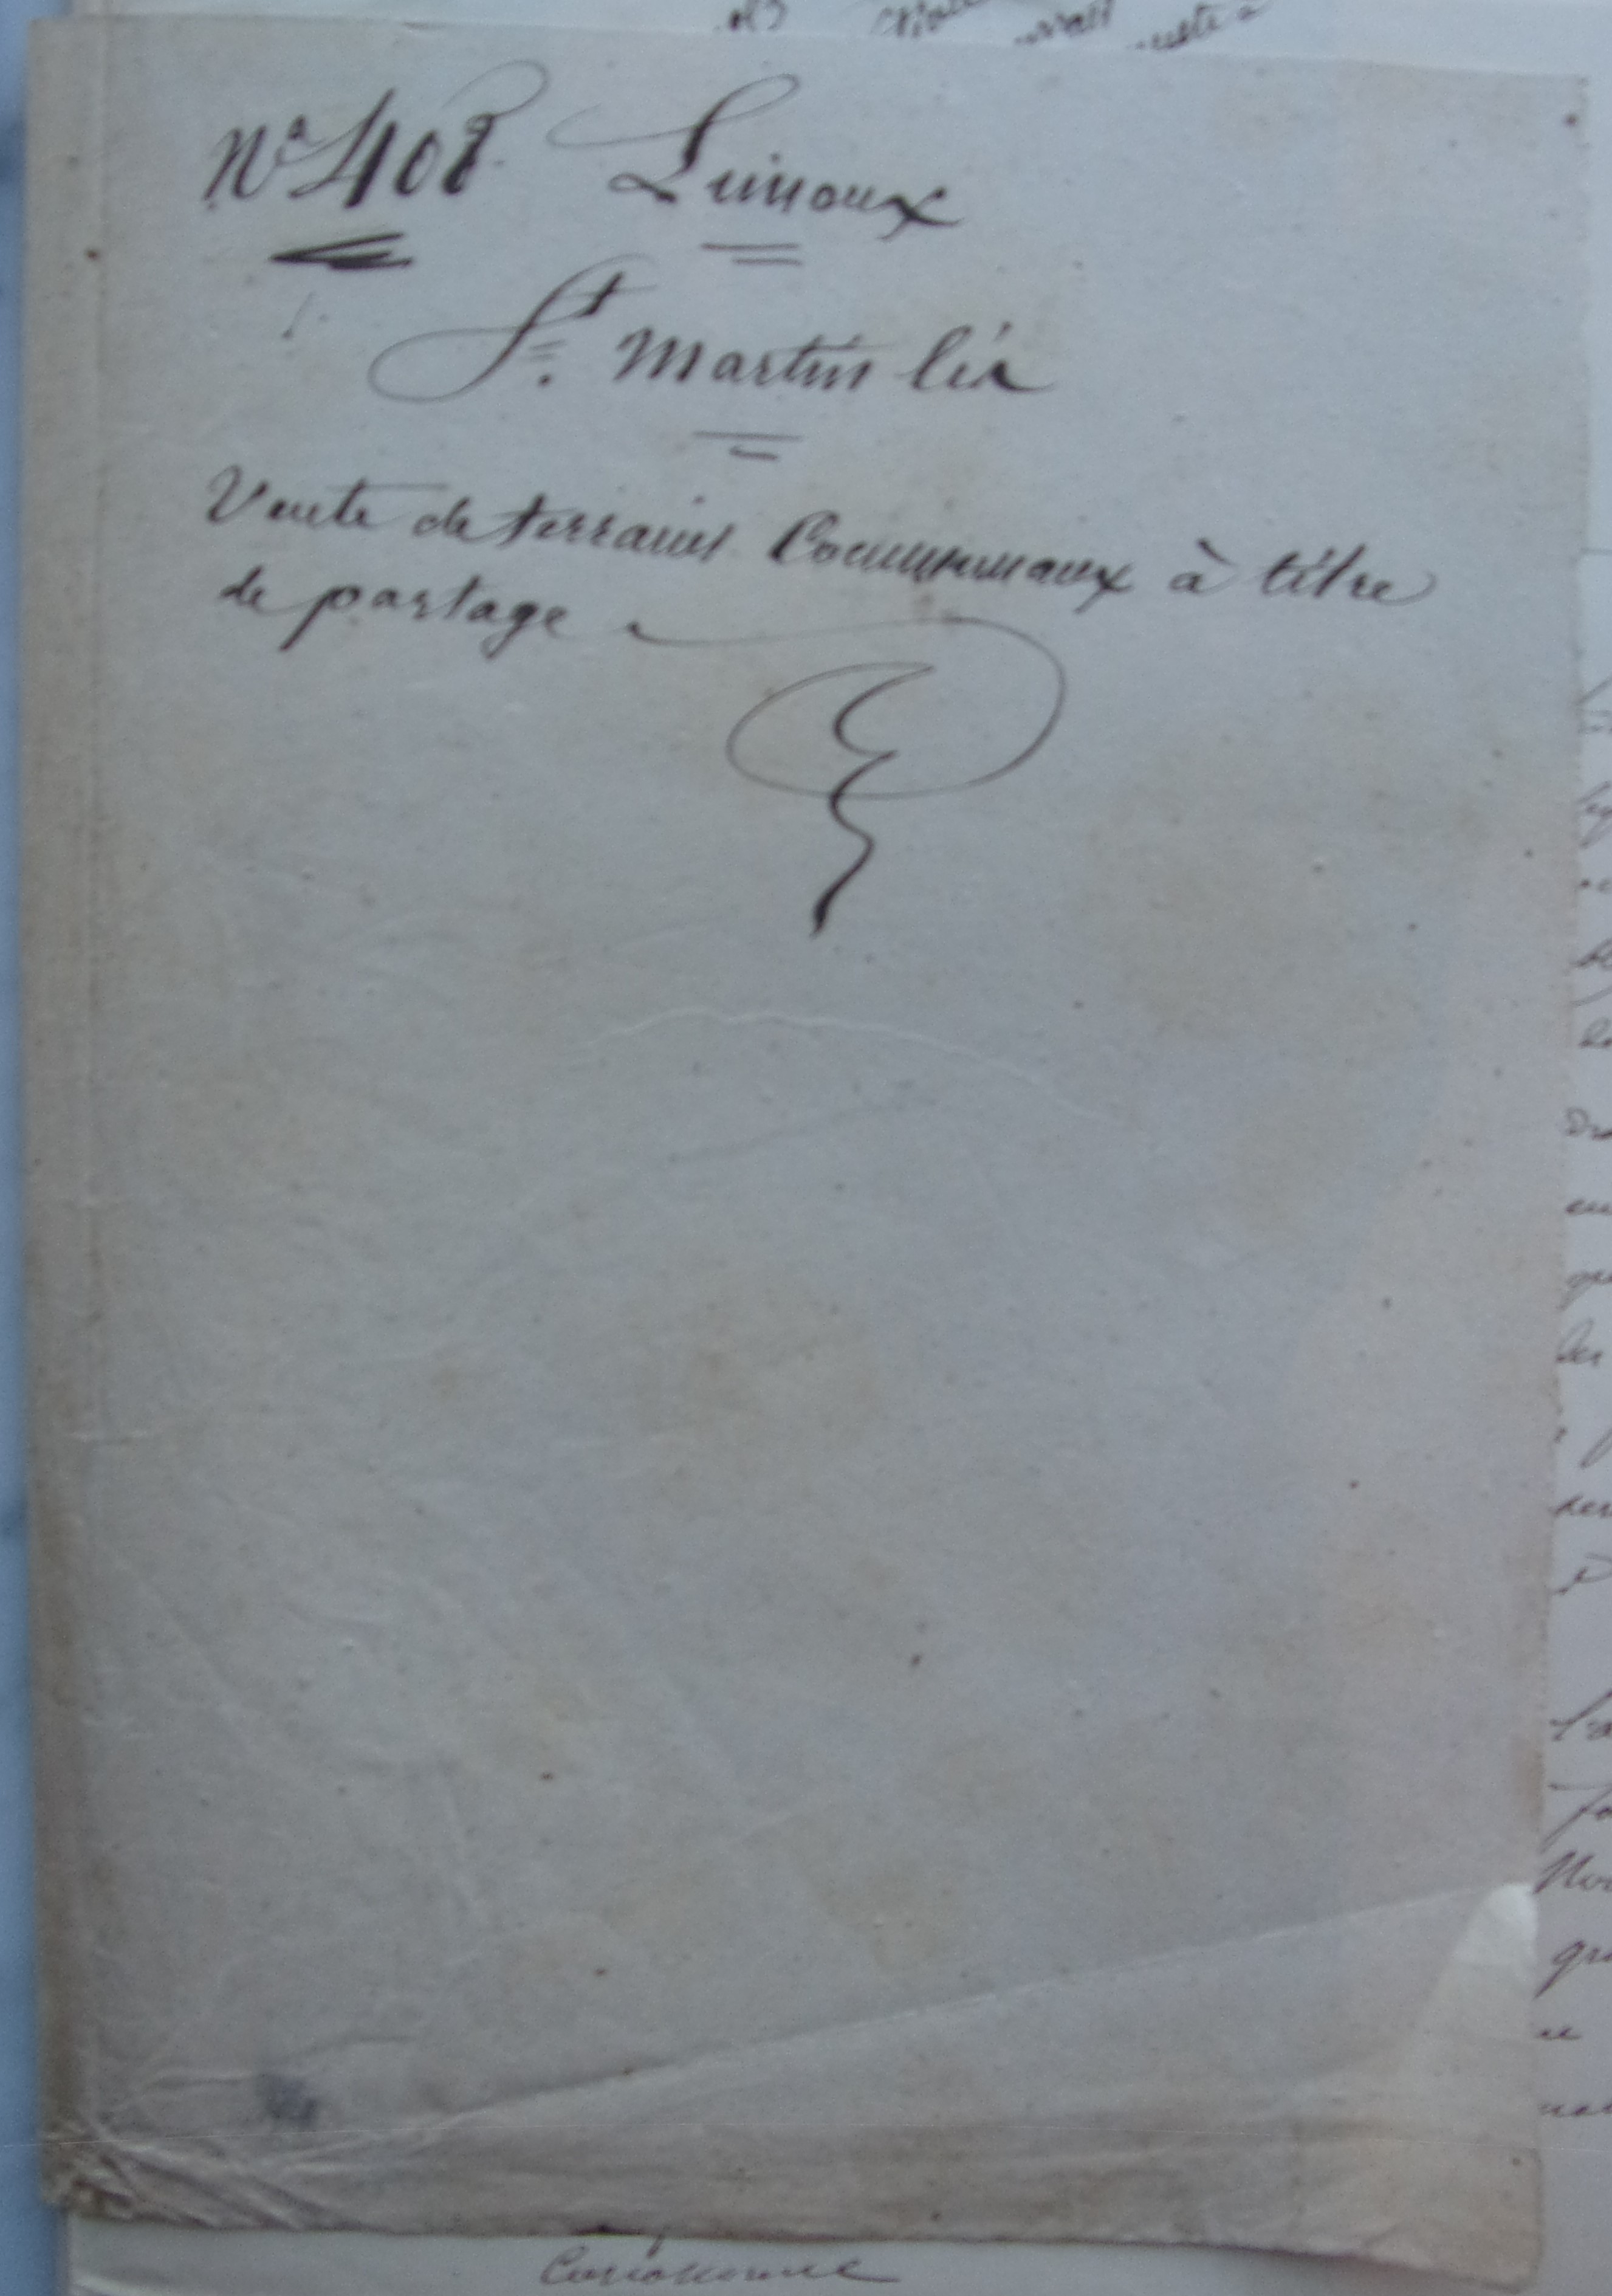 N° 408 Limoux
St. Martin lis
Vente de terrains Communaux à titre
de partage
Carcassonne